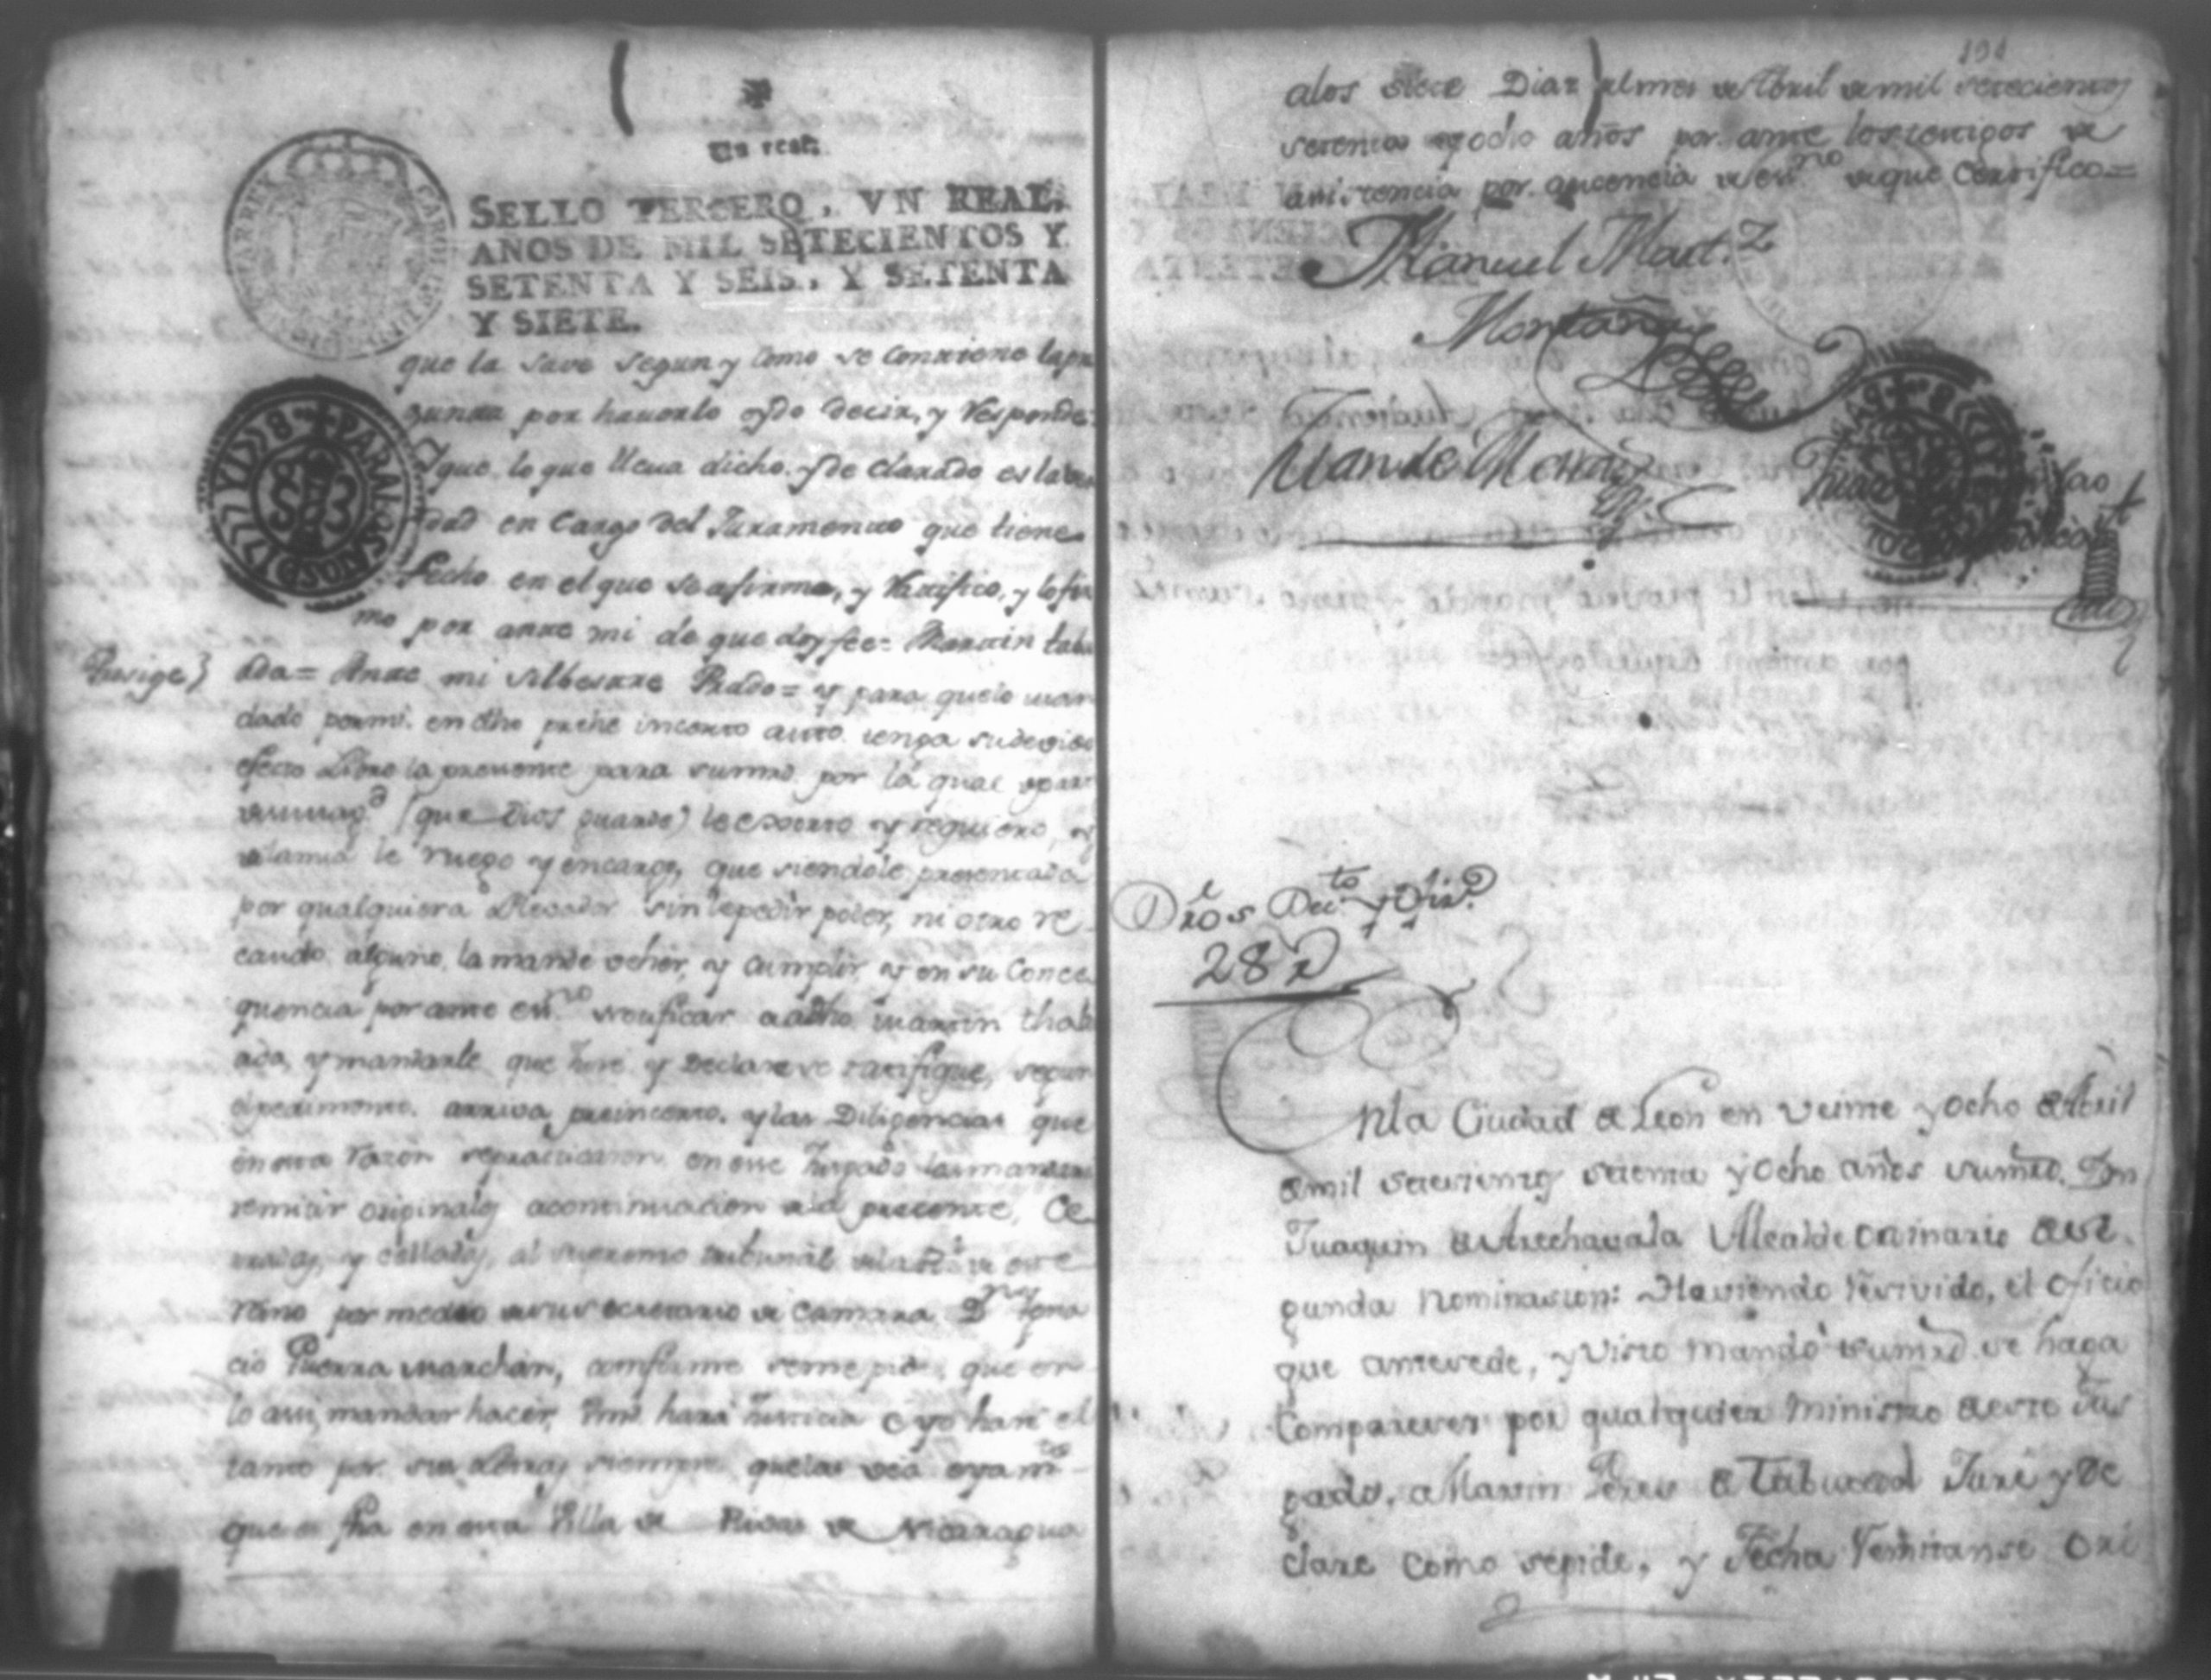 Un real.
SELLO TERCERO, VN REAL,
AÑOS DE MIL SETECIENTOS Y
SETENTA Y SEIS, Y SETENTA
Y SIETE.
que la save segun y como se contiene la pre
gunta por haverlo oydo decir, y responde
que lo que lleva dicho y declarado es la ver
dad en cargo del Juramento que tiene
fecho en el que se afirmo, y ratifico, y lo fir
mo por ante mi de que doy fee= Martin tabu
Prosige} ada= Ante mi Silbestre Prado= y para que lo man
dado por mi en dho preincerto auto tenga su devido
efecto Libro la presente para su mrd por la qual
(que Dios guarde) le exorto y requiero, y
de la mia le ruego y encargo, que siendole presentada
por qualquiera sin le pedir poder, ni otro re
caudo alguno, la mande y cumplir, y en su conce
quencia por ante essno a dho Martin thab
ada, y mandarle que Jure y Declare se ratifique, segun
el pedimento arriva preincerto, y las Diligencias que
en esta razon se practicaren en ese Jusgado las mandara
remitir originales a continuacion de la presente, Ce
rradas, y celladas, al supremo tribunal de la Rl de este
reino por medio de su secretario de Camara Dn Igna
cio Guerra Marchan, conforme se me pide, que en
lo asi mandar hacer, Vmd hara Justicia e yo hare el
tanto por sus Letras siempre que las vea
que es fha en esta Villa de Rivas de Nicaragua
191
a los siete Dias del mes de Abril de mil setecientos
setenta y ocho años por ante los testigos de
asistencia por ausencia de essno de que Certifico=
Manuel Mart.z
Montañez
Juan de
Juan
Dros Dec.to y Dilix.a
28 R
En la Ciudad de Leon en veinte y ocho de Abril
de mil setecientos setenta y ocho años su mrd. Dn
Juaquin de Arechavala Alcalde ordinario de se
gunda Nominasion: Haviendo resivido, el oficio
que antesede, y visto mandó su mrd se haga
Compareser por qualquier ministro de esto Jus
gado, a Martin Peres de Tabuada Jure y de
clare como se pide, y Fecha Remitanse ori